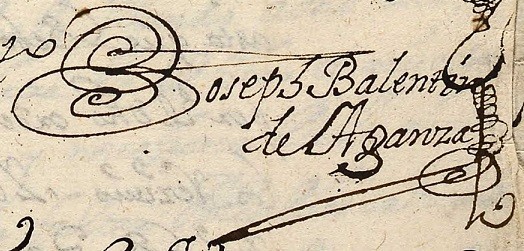 Joseph Balentin
de Aganza